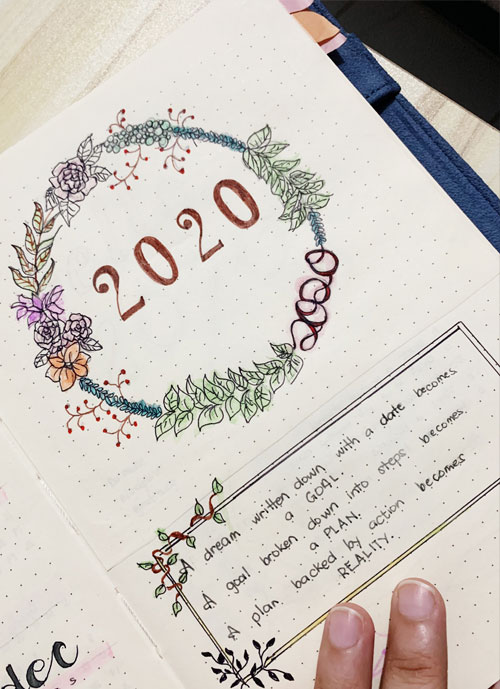 2020
2020
A dream written down with a date becomes
a GOAL.
A goal broken down into steps becomes
a PLAN.
A plan backed by action becomes
REALITY.
dec